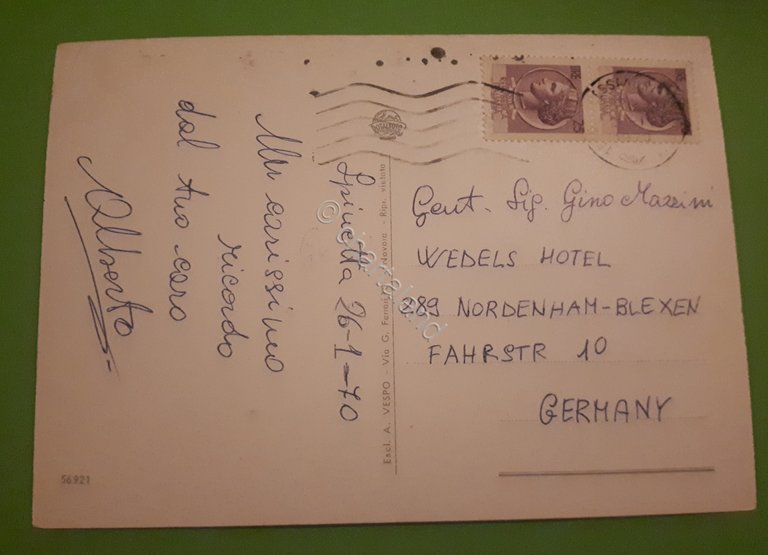 Spinetta 26-1-70
Un carissimo
ricordo
dal tuo caro
Alberto
Gent. Sig. Gino Mazzini
WEDELS HOTEL
289 NORDENHAM-BLEXEN
FAHRSTR 10
GERMANY
Escl. A. VESPO - Via G. Ferrari - Novara - Ripr. vietata
56921